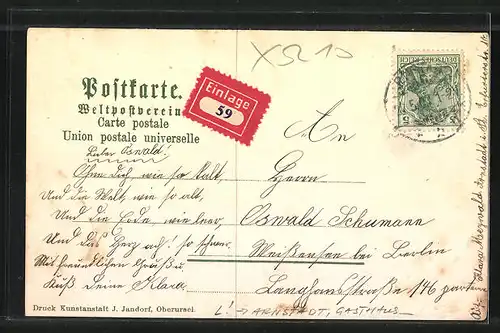 XS210
Postkarte.
Weltpostverein
Carte postale
Union postale universelle
Einlage
59
Lieber Oswald!
Ohne dich, wie so kalt,
Und die Welt, wie so alt,
Und die Erde, wie leer,
Und das Herz ach! so schwer.
Mit freundlichem Gruß u.
Kuß Deine Klara
An
Herrn
Oswald Schumann
Weißensee bei Berlin
Langhansstraße 146 parterre
Druck Kunstanstalt J. Jandorf, Oberursel.
L! → ARNSTADT, GASTHAUS
Abs. Klara